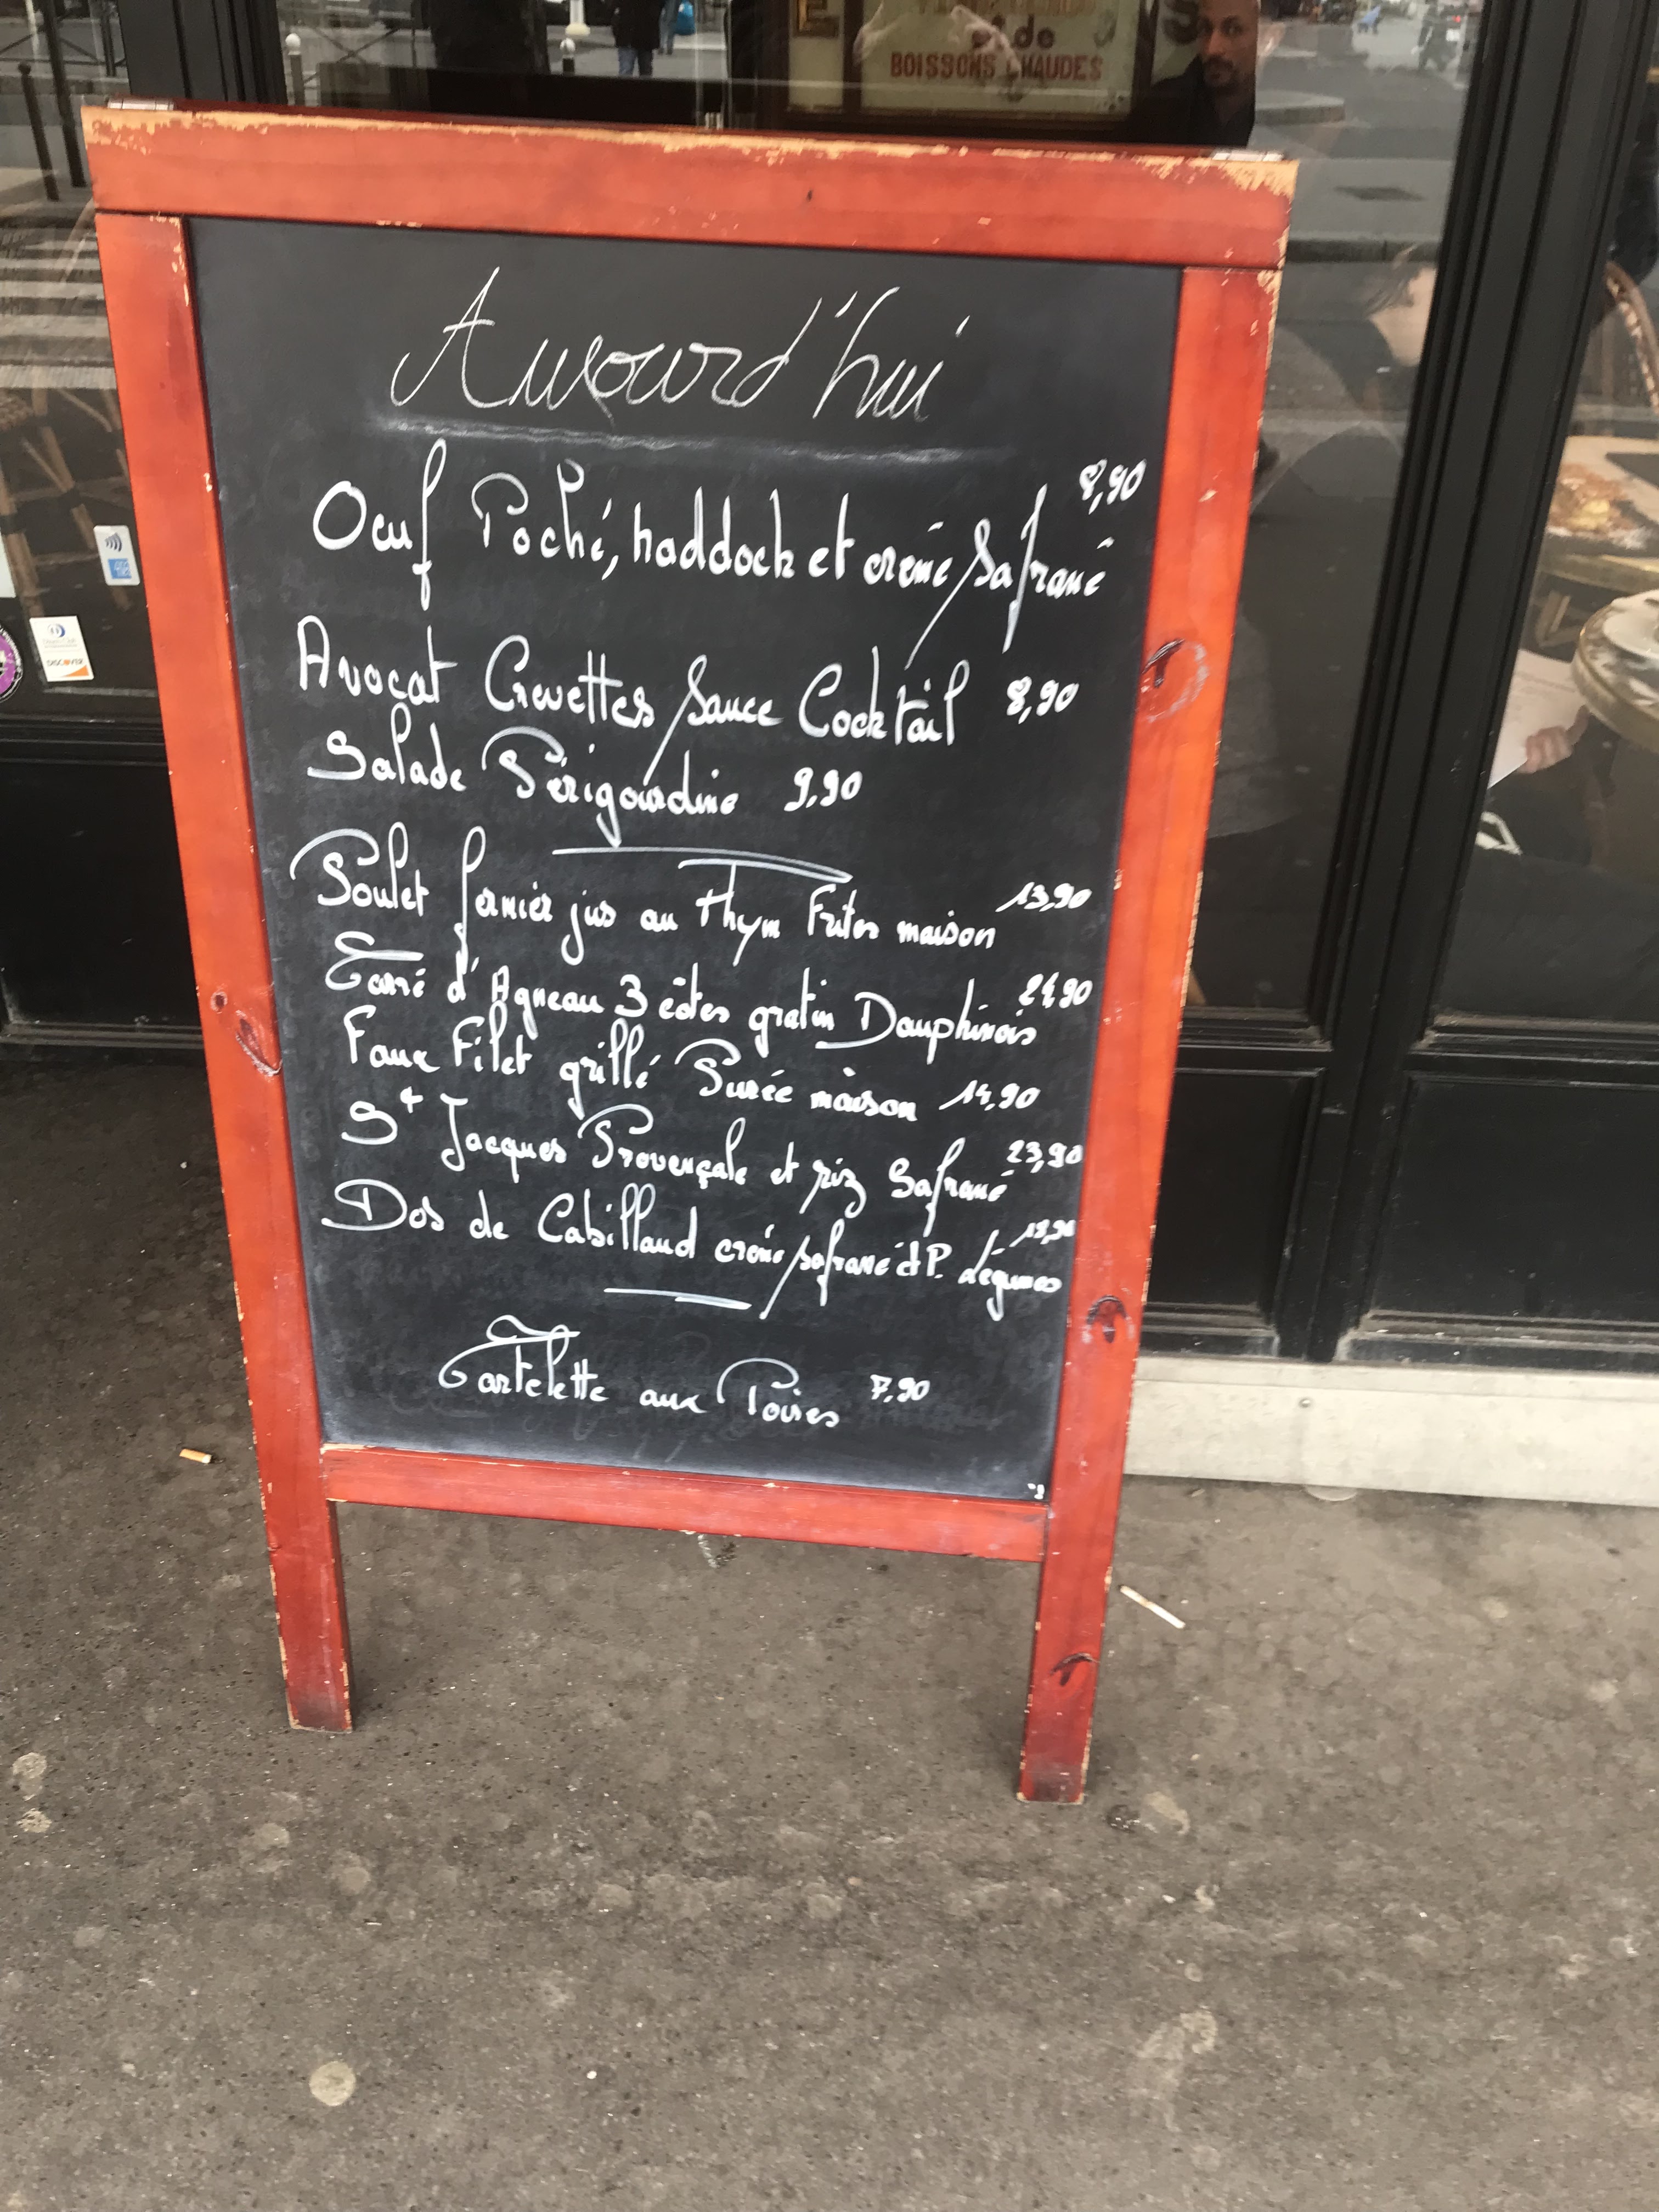 de
BOISSONS CHAUDES
Aujourd'hui
Oeuf Poché, haddock et crème Safrané 8,90
Avocat Crevettes Sauce Cocktail 8,90
Salade Périgourdine 9,90
Poulet fermier jus au Thym Frites maison 13,90
Carré d'Agneau 3 côtes gratin Dauphinois 24,90
Faux Filet grillé Purée maison 14,90
St Jacques Provençale et riz Safrané 23,90
Dos de Cabillaud crème safrané et P. légumes
Tartelette aux Poires 7,90
DISCOVER